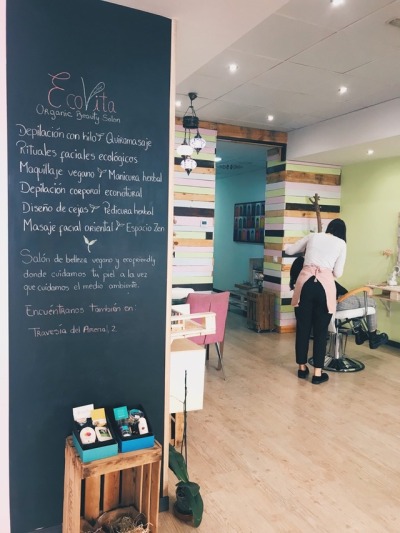 EcoVita
Organic Beauty Salon
Depilación con hilo Quiromasaje
Rituales faciales ecológicos
Maquillaje vegano Manicura herbal
Depilación corporal econatural
Diseño de cejas Pedicura herbal
Masaje facial oriental Espacio Zen
Salón de belleza vegano y ecofriendly
donde cuidamos tu piel a la vez
que cuidamos el medio ambiente.
Encuéntranos también en:
Travesía del Arenal, 2